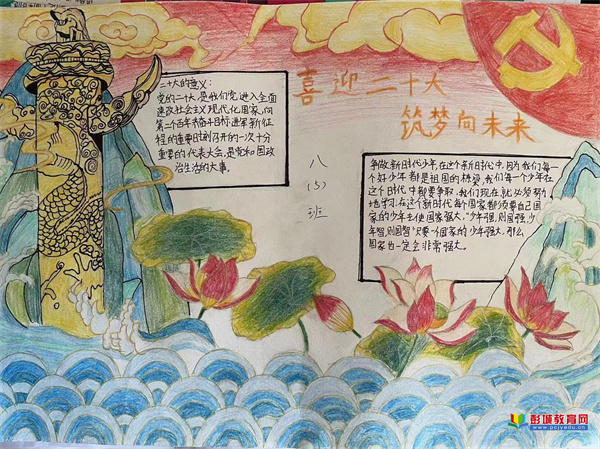 喜迎二十大
筑梦向未来
二十大的意义:
党的二十大,是我们党进入全面
建设社会主义现代化国家、向
第二个百年奋斗目标进军新征
程的重要时刻召开的一次十分
重要的代表大会,是党和国政
治生活的大事。
八
(5)
班
争做新时代少年,在这个新时代中,因为我们每一
个好少年都是祖国的林资,我们每一个少年在
这个时代中都要争取,我们现在就必须努力
地学习,在这个新时代,每个国家都须要自己国
家的少年去使国家强大,"少年强,则国强,少
年智,则国智"只要一个国家的少年强大,那么
国家也一定会非常强大。
彭城教育网
www.pcjyedu.cn